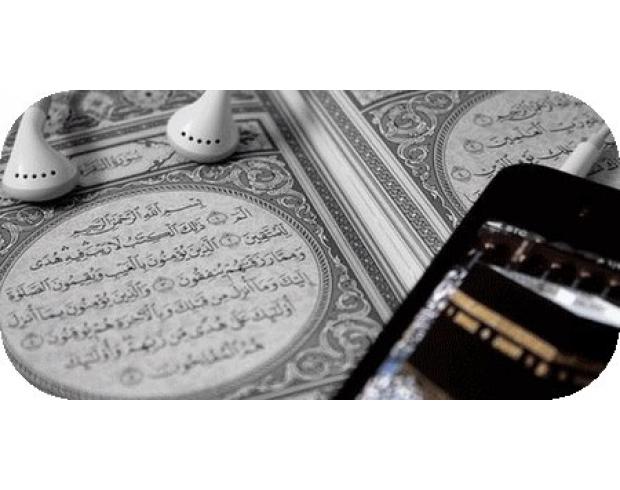 سُورَةُ البَقَرَةِ
بِسْمِ اللَّهِ الرَّحْمَٰنِ الرَّحِيمِ
الٓمٓ ١ ذَٰلِكَ الْكِتَٰبُ لَا رَيْبَ فِيهِ هُدًى
لِّلْمُتَّقِينَ ٢ الَّذِينَ يُؤْمِنُونَ بِالْغَيْبِ وَيُقِيمُونَ الصَّلَوٰةَ
وَمِمَّا رَزَقْنَٰهُمْ يُنفِقُونَ ٣ وَالَّذِينَ يُؤْمِنُونَ بِمَا أُنزِلَ
إِلَيْكَ وَمَا أُنزِلَ مِن قَبْلِكَ وَبِالْآخِرَةِ هُمْ يُوقِنُونَ ٤
أُو۟لَٰئِكَ عَلَىٰ هُدًى مِّن رَّبِّهِمْ وَأُو۟لَٰئِكَ
هُمُ الْمُفْلِحُونَ ٥